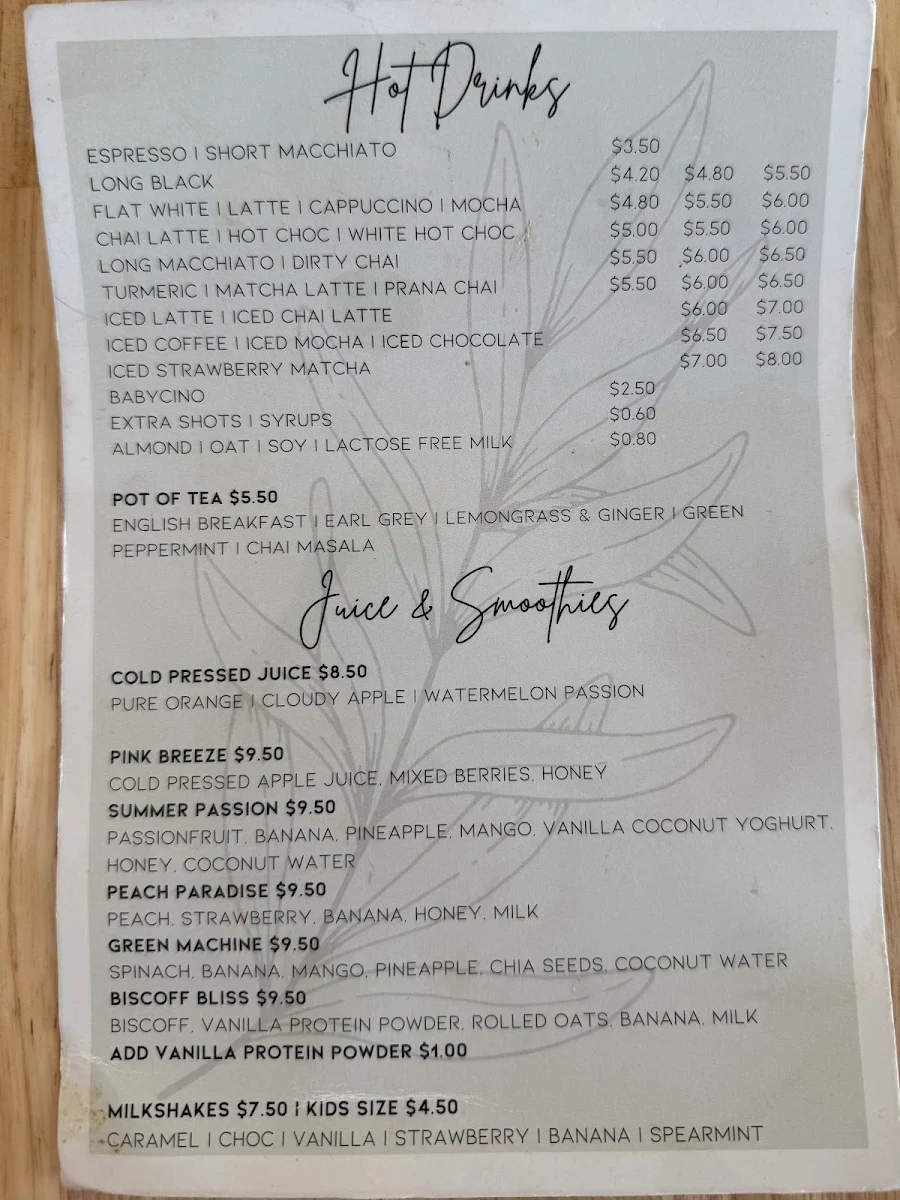 Hot Drinks
ESPRESSO | SHORT MACCHIATO $3.50
LONG BLACK $4.20 $4.80 $5.50
FLAT WHITE | LATTE | CAPPUCCINO | MOCHA $4.80 $5.50 $6.00
CHAI LATTE | HOT CHOC | WHITE HOT CHOC $5.00 $5.50 $6.00
LONG MACCHIATO | DIRTY CHAI $5.50 $6.00 $6.50
TURMERIC | MATCHA LATTE | PRANA CHAI $5.50 $6.00 $6.50
ICED LATTE | ICED CHAI LATTE $6.00 $7.00
ICED COFFEE | ICED MOCHA | ICED CHOCOLATE $6.50 $7.50
ICED STRAWBERRY MATCHA $7.00 $8.00
BABYCINO $2.50
EXTRA SHOTS | SYRUPS $0.60
ALMOND | OAT | SOY | LACTOSE FREE MILK $0.80
POT OF TEA $5.50
ENGLISH BREAKFAST | EARL GREY | LEMONGRASS & GINGER | GREEN
PEPPERMINT | CHAI MASALA
Juice & Smoothies
COLD PRESSED JUICE $8.50
PURE ORANGE | CLOUDY APPLE | WATERMELON PASSION
PINK BREEZE $9.50
COLD PRESSED APPLE JUICE, MIXED BERRIES, HONEY
SUMMER PASSION $9.50
PASSIONFRUIT, BANANA, PINEAPPLE, MANGO, VANILLA COCONUT YOGHURT,
HONEY, COCONUT WATER
PEACH PARADISE $9.50
PEACH, STRAWBERRY, BANANA, HONEY, MILK
GREEN MACHINE $9.50
SPINACH, BANANA, MANGO, PINEAPPLE, CHIA SEEDS, COCONUT WATER
BISCOFF BLISS $9.50
BISCOFF, VANILLA PROTEIN POWDER, ROLLED OATS, BANANA, MILK
ADD VANILLA PROTEIN POWDER $1.00
MILKSHAKES $7.50 | KIDS SIZE $4.50
CARAMEL | CHOC | VANILLA | STRAWBERRY | BANANA | SPEARMINT